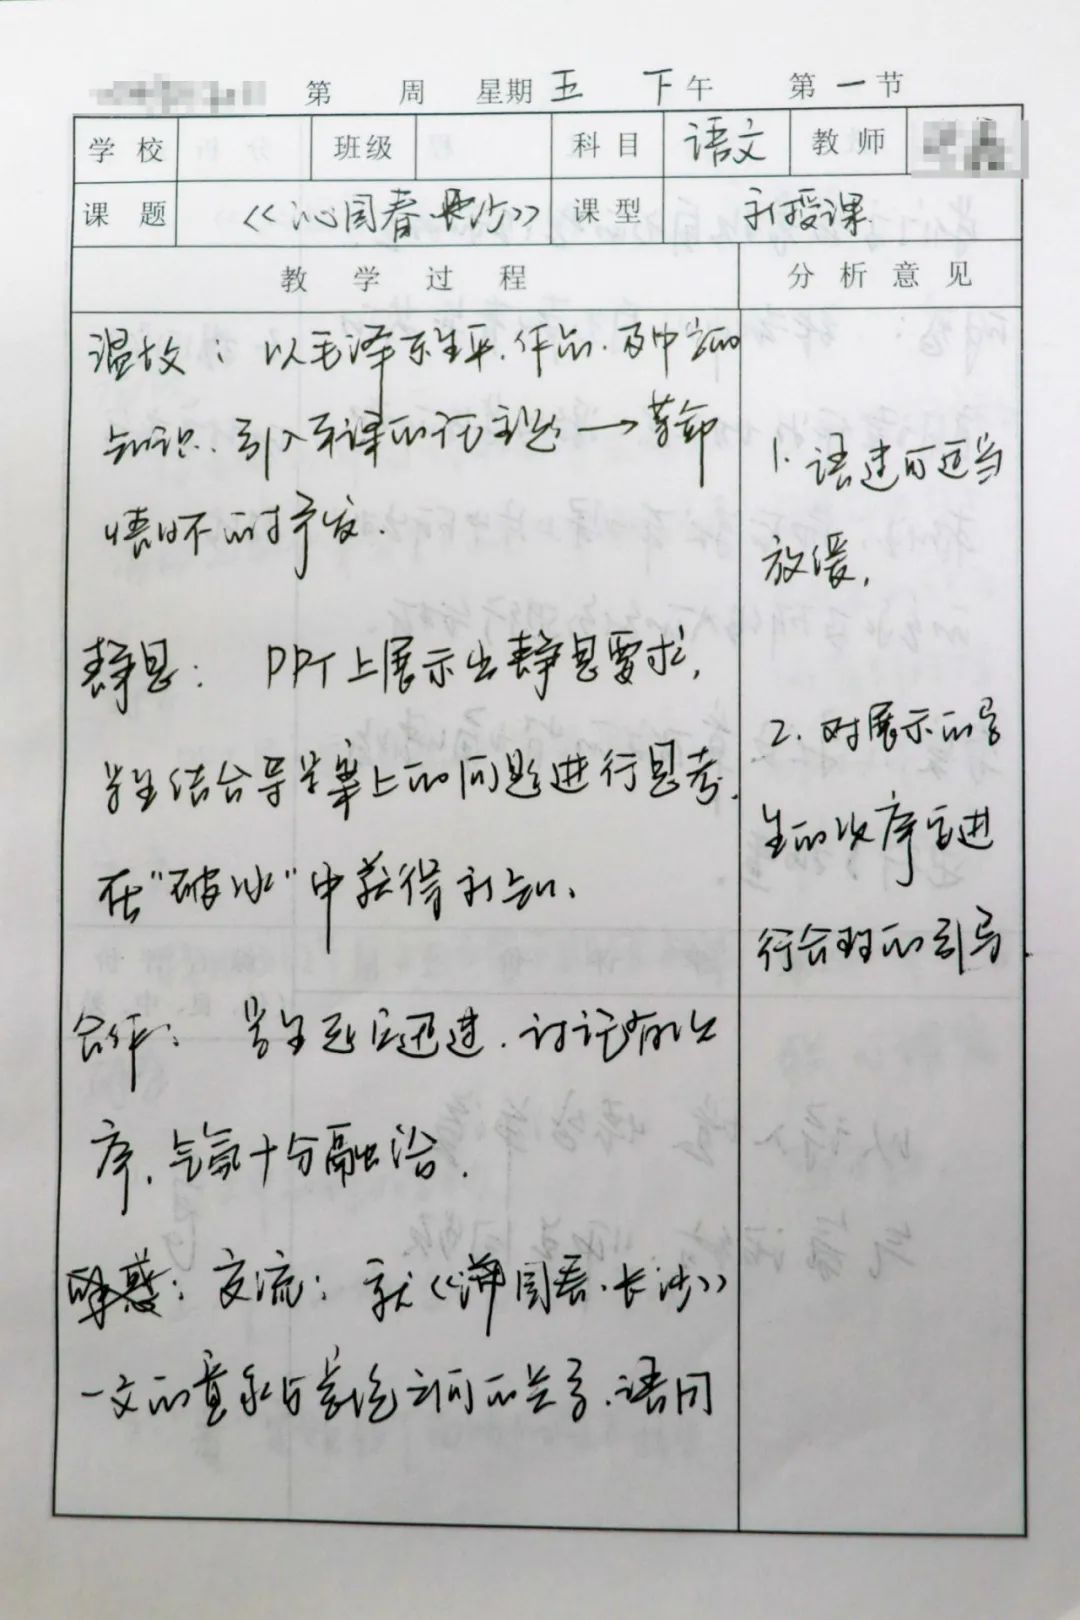 第 周 星期 五 下午 第一节
学校 班级 科目 语文 教师
课题 《沁园春·长沙》 课型 新授课
教学过程 分析意见
温故：以毛泽东生平、作品、及中学的
知识、引入本课的 主题→革命
情怀的抒发.
静思：PPT上展示出静思要求,
学生结合导学案上的问题进行思考.
在"破冰"中获得新知.
合作：学生反应迅速、讨论有次
序、气氛十分融洽.
交流：就《沁园春·长沙》
一文的意象与意境之间的关系、语同
1. 语速可适当
放缓,
2. 对展示的学
生的次序宜进
行合理的引导.